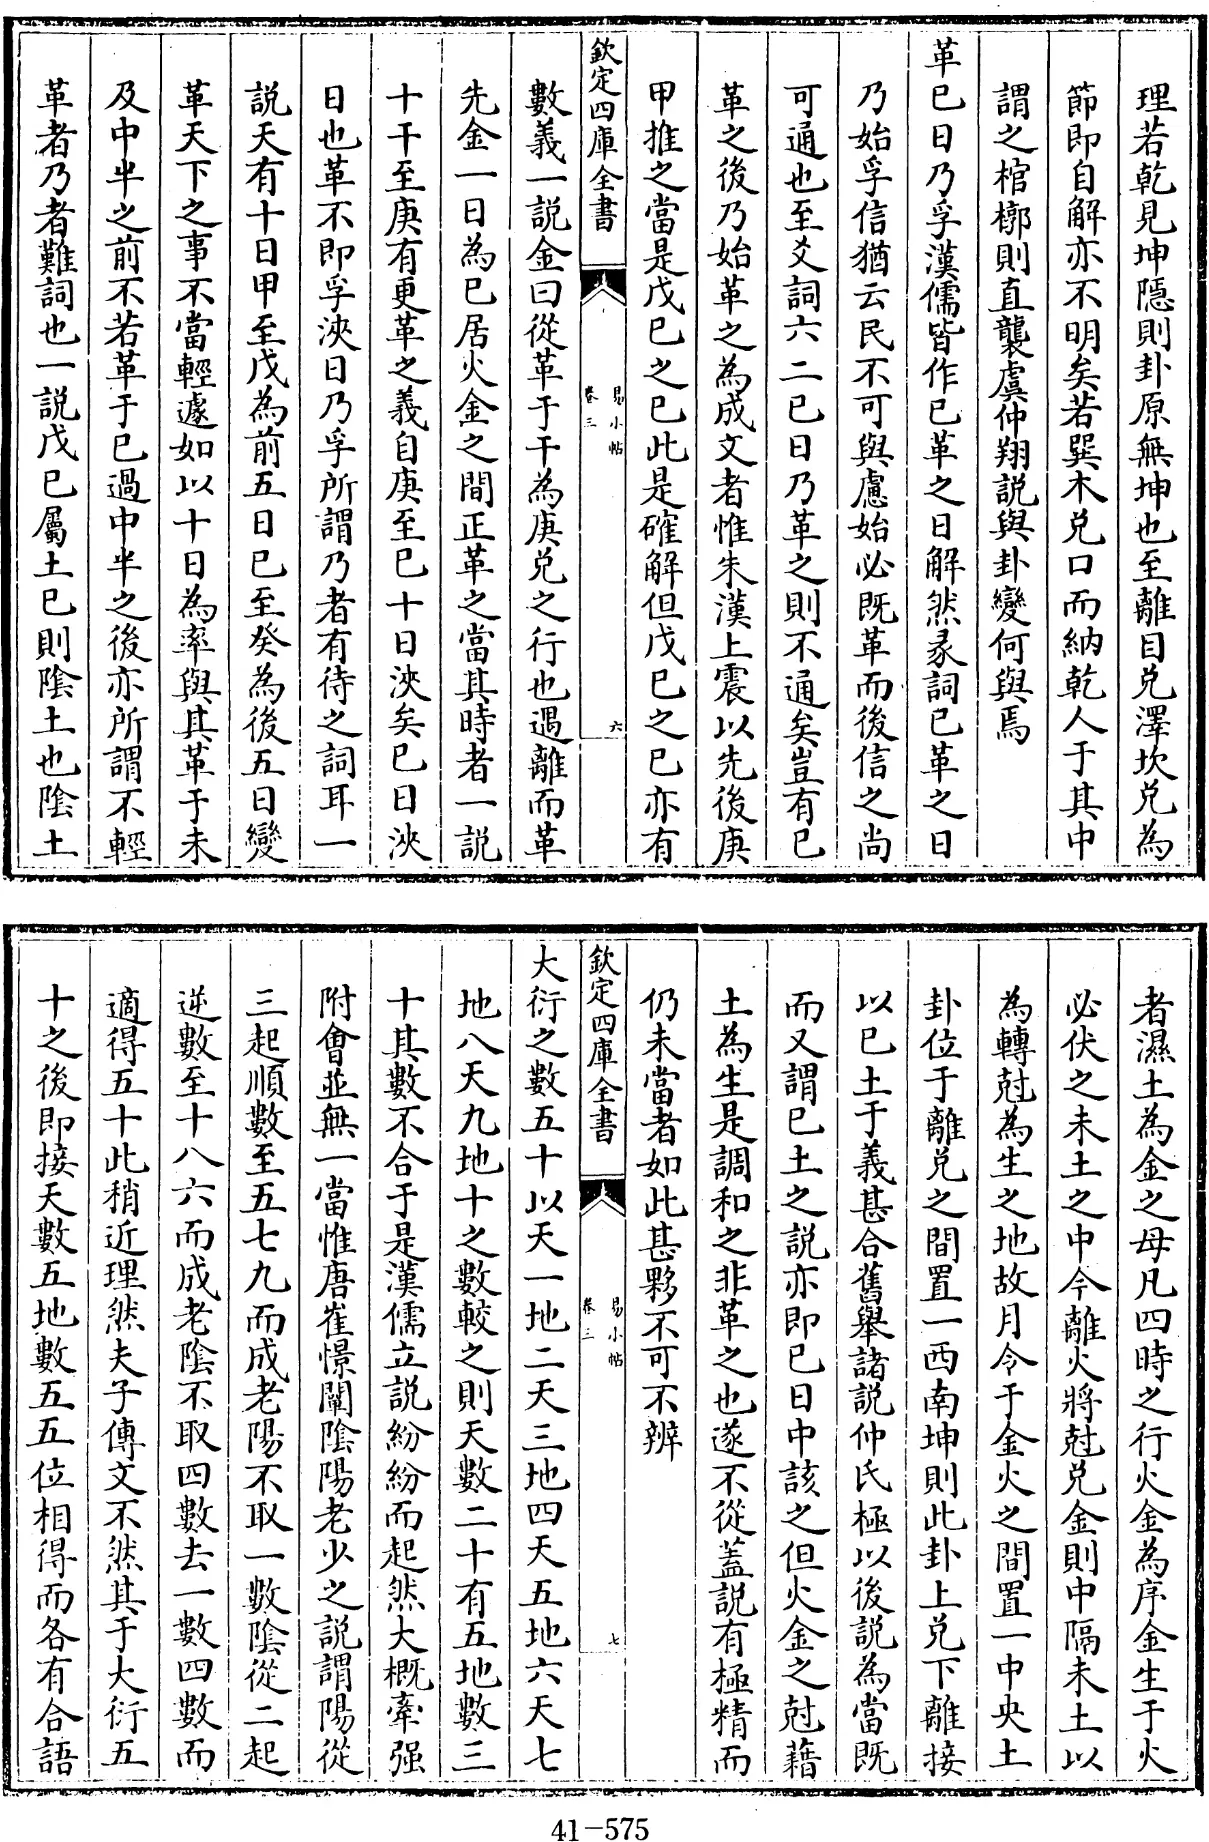 理若乾見坤隱則卦原無坤也至離目兌澤坎兌為
節即自解亦不明矣若巽木兌口而納乾人于其中
謂之棺槨則直襲虞仲翔說與卦變何與焉
革巳日乃孚漢儒皆作已革之日解然彖詞已革之日
乃始孚信猶云民不可與慮始必既革而後信之尚
可通也至爻詞六二巳日乃革之則不通矣豈有已
革之後乃始革之為成文者惟朱漢上震以先後庚
甲推之當是戊己之己此是確解但戊己之己亦有
欽定四庫全書
易小帖
卷三
六
數義一説金曰從革于干為庚兌之行也遇離而革
先金一日為己居火金之間正革之當其時者一説
十干至庚有更革之義自庚至己十日浹矣己日浹
日也革不即孚浹日乃孚所謂乃者有待之詞耳一
説天有十日甲至戊為前五日己至癸為後五日變
革天下之事不當輕遽如以十日為率與其革于未
及中半之前不若革于已過中半之後亦所謂不輕
革者乃者難詞也一説戊己屬土己則陰土也陰土
者濕土為金之母凡四時之行火金為序金生于火
必伏之未土之中今離火將尅兌金則中隔未土以
為轉尅為生之地故月令于金火之間置一中央土
卦位于離兌之間置一西南坤則此卦上兌下離接
以己土于義甚合舊舉諸説仲氏極以後説為當既
而又謂己土之説亦即己日中該之但火金之尅藉
土為生是調和之非革之也遂不從蓋説有極精而
仍未當者如此甚夥不可不辨
欽定四庫全書
易小帖
卷三
七
大衍之數五十以天一地二天三地四天五地六天七
地八天九地十之數較之則天數二十有五地數三
十其數不合于是漢儒立説紛紛而起然大概牽强
附會並無一當惟唐崔憬闡陰陽老少之説謂陽從
三起順數至五七九而成老陽不取一數陰從二起
逆數至十八六而成老陰不取四數去一數四數而
適得五十此稍近理然夫子傳文不然其于大衍五
十之後即接天數五地數五五位相得而各有合語
41-575